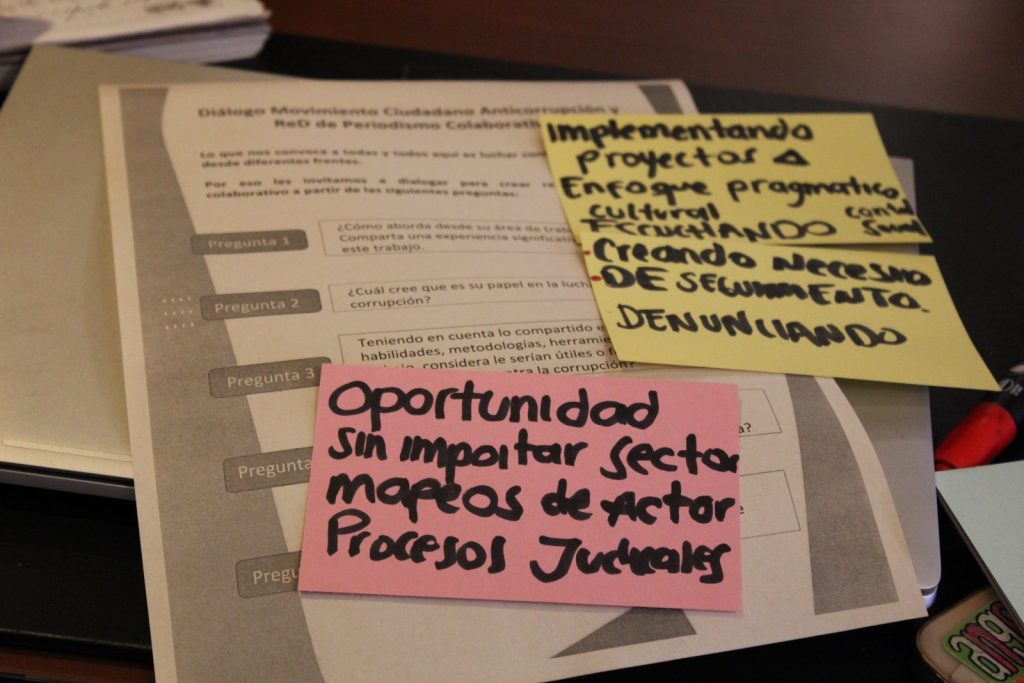 Diálogo Movimiento Ciudadano Anticorrupción y
ReD de Periodismo Colaborati
Lo que nos convoca a todas y todos aquí es luchar con
desde diferentes frentes.
Por eso les invitamos a dialogar para crear re
colaborativo a partir de las siguientes preguntas:
Pregunta 1
¿Cómo aborda desde su área de trab
Comparta una experiencia significati
este trabajo.
Pregunta 2
¿Cuál cree que es su papel en la luch
corrupción?
Pregunta 3
Teniendo en cuenta lo compartido e
habilidades, metodologías, herramie
considera le serían útiles o f
tra la corrupción?
Pregunta
a?
Pregu
Implementando
proyectos
Enfoque pragmatico
cultural
ESCUCHANDO
Creando
DE SEGUIMIENTO.
DENUNCIANDO
Oportunidad
sin impoitar sector
mapeos de Actor
Procesos Judiciales